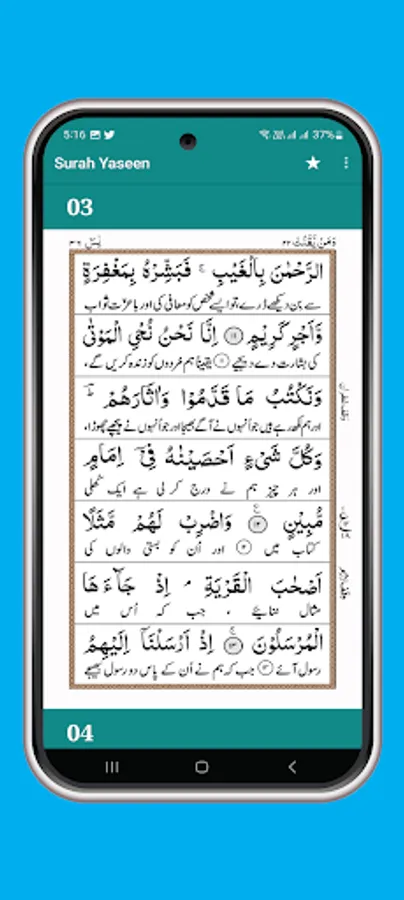 5:16 37%
Surah Yaseen
03
یٰسٓ ۳۶ وَمَنْ يَّقْنُتْ ۲۲
الرَّحْمٰنَ بِالْغَيْبِ ۚ فَبَشِّرْهُ بِمَغْفِرَةٍ
سے بن دیکھے ڈرے، تو ایسے شخص کو معافی کی اور با عزّت ثواب
وَّاَجْرٍ كَرِيْمٍ ۝۱۱ اِنَّا نَحْنُ نُحْيِ الْمَوْتٰى
کی بشارت دے دیجیے ۝۱۱ یقیناً ہم مُردوں کو زندہ کریں گے،
وَنَكْتُبُ مَا قَدَّمُوْا وَاٰثَارَهُمْ ؕ
اور ہم لکھ رہے ہیں جو اُنہوں نے آگے بھیجا اور جو اُنہوں نے پیچھے چھوڑا،
وَكُلَّ شَيْءٍ اَحْصَيْنٰهُ فِيْٓ اِمَامٍ
اور ہر چیز ہم نے درج کر لی ہے ایک کھلی
مُّبِيْنٍ ۝۱۲ وَاضْرِبْ لَهُمْ مَّثَلًا
کتاب میں ۝۱۲ اور اُن کو بستی والوں کی
اَصْحٰبَ الْقَرْيَةِ ۘ اِذْ جَآءَهَا
مثال سنائیے ، جب کہ اُس میں
الْمُرْسَلُوْنَ ۝۱۳ اِذْ اَرْسَلْنَآ اِلَيْهِمُ
رسول آئے ۝۱۳ جب کہ ہم نے اُن کے پاس دو رسول بھیجے
04